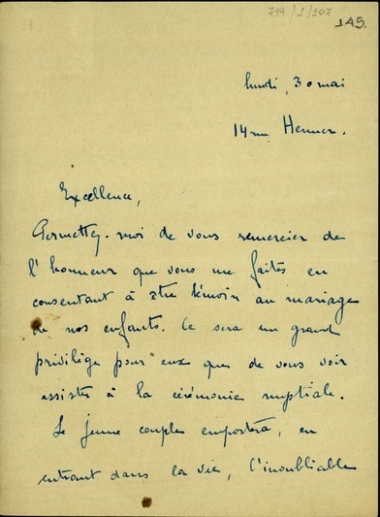 719/1/107
145.
lundi, 30 mai
14 rue Henner.
Excellence,
Permettez-moi de vous remercier de
l'honneur que vous me faites en
consentant à être témoin au mariage
de nos enfants. Ce sera un grand
privilège pour eux que de vous voir
assister à la cérémonie nuptiale.
Le jeune couple emportera, en
entrant dans la vie, l'inoubliable